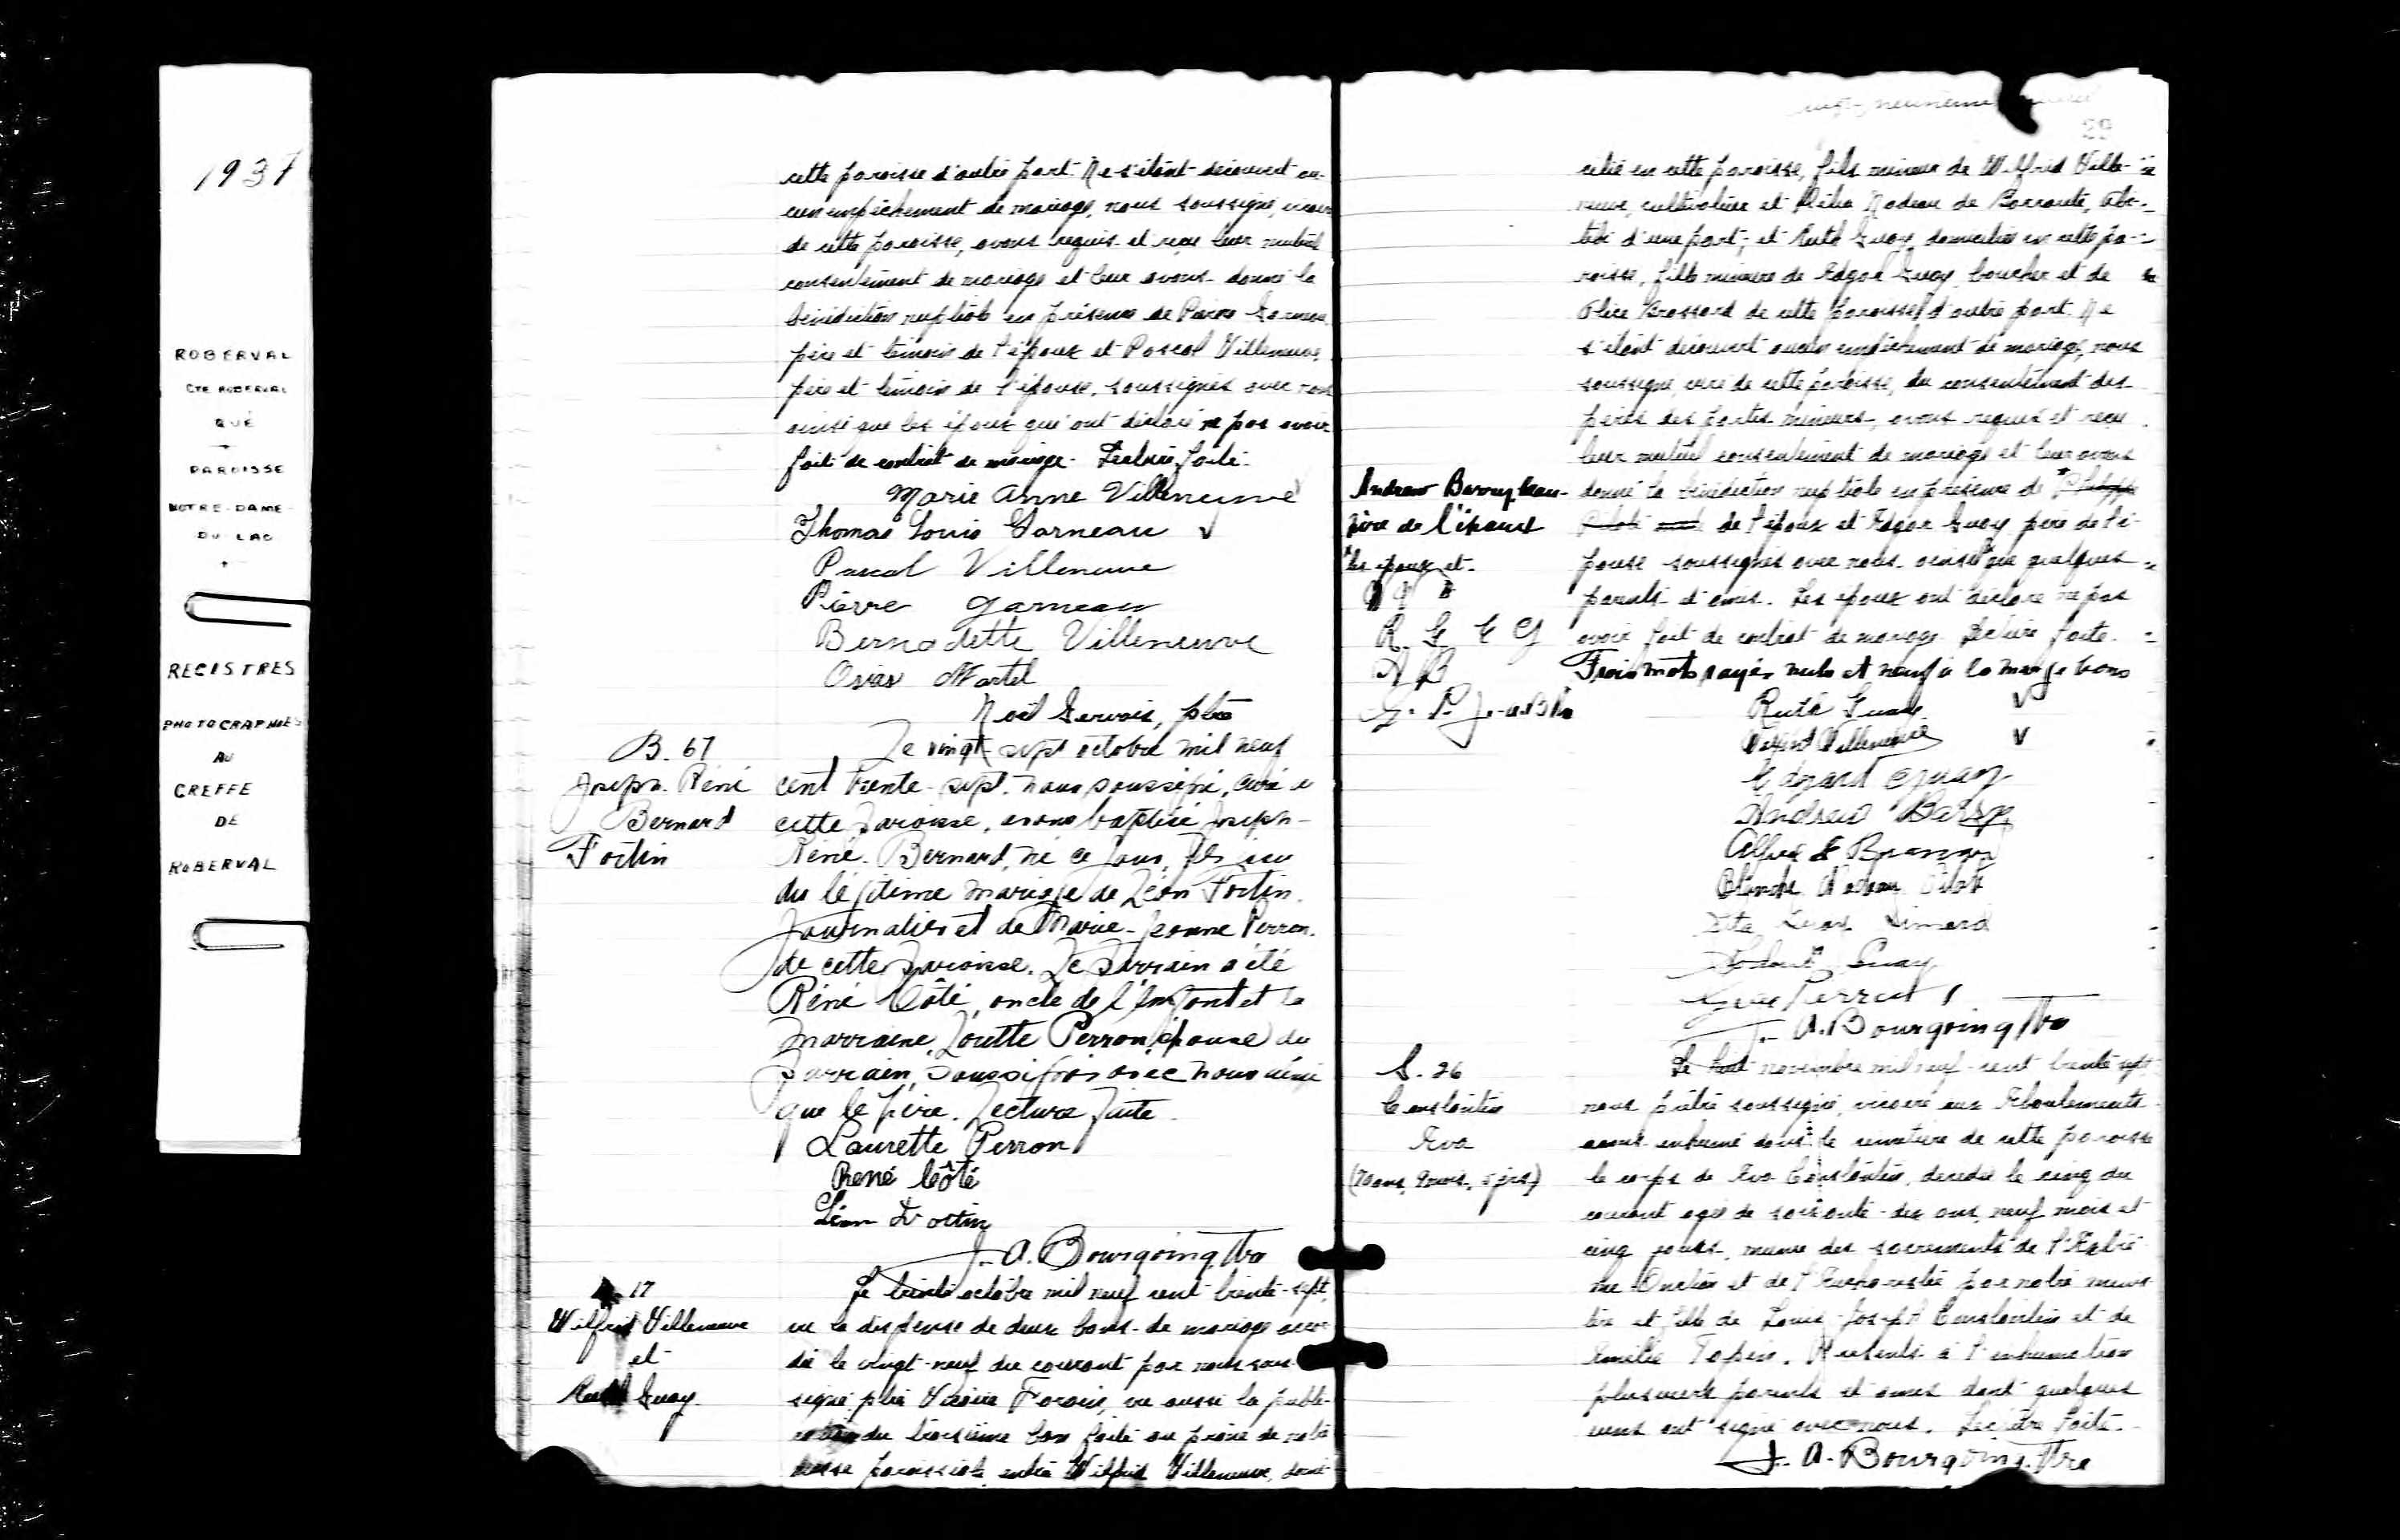 1937
ROBERVAL
CTE ROBERVAL
QUÉ
PAROISSE
NOTRE-DAME-
DU-LAC
REGISTRES
PHOTOGRAPHIÉS
AU
GREFFE
DE
ROBERVAL
cette paroisse d'autre part. Ne s'étant découvert au-
cun empêchement de mariage, nous soussigné, vicaire
de cette paroisse, avons requis et reçu leur mutuel
consentement de mariage et leur avons donné la
bénédiction nuptiale en présence de Pierre Garneau
père et témoin de l'époux et Pascal Villeneuve
père et témoin de l'épouse, soussignés avec nous
ainsi que les époux qui ont déclaré ne pas avoir
fait de contrat de mariage. Lecture faite.
Marie Anne Villeneuve
Thomas Louis Garneau
Pascal Villeneuve
Pierre Garneau
Bernadette Villeneuve
Osias Martel
Noël Gervais, ptre
B. 67
Joseph. Réné
Bernard
Fortin
Le vingt-sept octobre mil neuf
cent trente-sept. nous soussigné, curé de
cette paroisse, avons baptisé Joseph-
Réné-Bernard, né ce jour, fils issu
du légitime mariage de Léon Fortin.
journalier et de Marie-Jeanne Perron.
de cette paroisse. Le parrain a été
Réné Côté, oncle de l'enfant et la
marraine, Lorette Perron, épouse du
parrain, soussignés avec nous ainsi
que le père. Lecture faite.
Laurette Perron
René Côté
Léon Fortin
J.-A. Bourgoing Ptre
17
Wilfrid Villeneuve
et
Ruth Guay.
Le trente octobre mil neuf cent trente-sept,
vu la dispense de deux bans de mariage accor-
dée le vingt-neuf du courant par nous sous-
signé ptre Vicaire Forain, vu aussi la publi-
cation du troisième ban faite au prône de notre
messe paroissiale entre Wilfrid Villeneuve, domi-
29
cilié en cette paroisse, fils mineur de Wilfrid Ville-
neuve, cultivateur et Nadeau de Barraute, Abi-
tibi d'une part; et Ruth Guay, domiciliée en cette pa-
roisse, fille mineure de Edgar Guay, boucher et de
Alice Brassard de cette paroisse d'autre part. Ne
s'étant découvert aucun empêchement de mariage, nous
soussigné, curé de cette paroisse, du consentement des
pères des parties mineures, avons requis et reçu
leur mutuel consentement de mariage et leur avons
donné la bénédiction nuptiale en présence de Philippe
Pilote de l'époux et Edgar Guay père de l'é-
pouse soussignés avec nous ainsi que quelques
parents et amis. Les époux ont déclaré ne pas
avoir fait de contrat de mariage. Lecture faite.
Trois mots rayés nuls et neuf à la marge bons
Andrew
père de l'époux
les époux et
R. G. E G
A B
Ruth Guay.
Wilfrid Villeneuve
Edgard Guay
Andrew
Alfred
Blanche Nadeau Pilote
Simard
Guay
J.- A. Bourgoing Ptre
S. 26
Constantin
Eva
(70 ans, 9 mois, 5 jrs)
Le huit novembre mil neuf-cent trente-sept
nous prêtre soussigné, vicaire aux Eboulements
avons inhumé dans le cimetière de cette paroisse
le corps de Eva Constantin, décédée le cinq du
courant agée de soixante-dix ans, neuf mois et
cinq jours, munie des sacrements de l'Extrê-
me-Onction et de l'Eucharistie par notre minis-
tère et fille de Louis-Joseph Constantin et de
Emélie Topin. Présents à l'inhumation
plusieurs parents et amis dont quelques
uns ont signé avec nous. Lecture faite.
J.- A. Bourgoing. Ptre